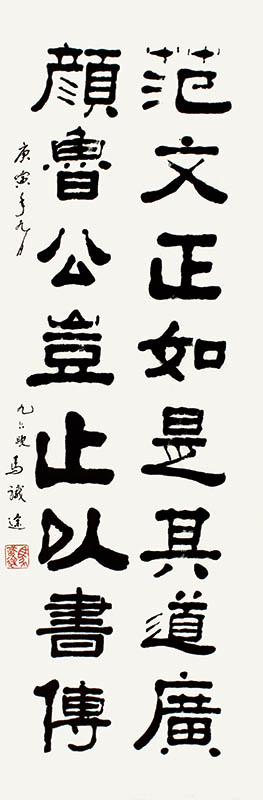 范文正如是其道廣
顏魯公豈止以書傳
庚寅年九月
九六叟馬識途